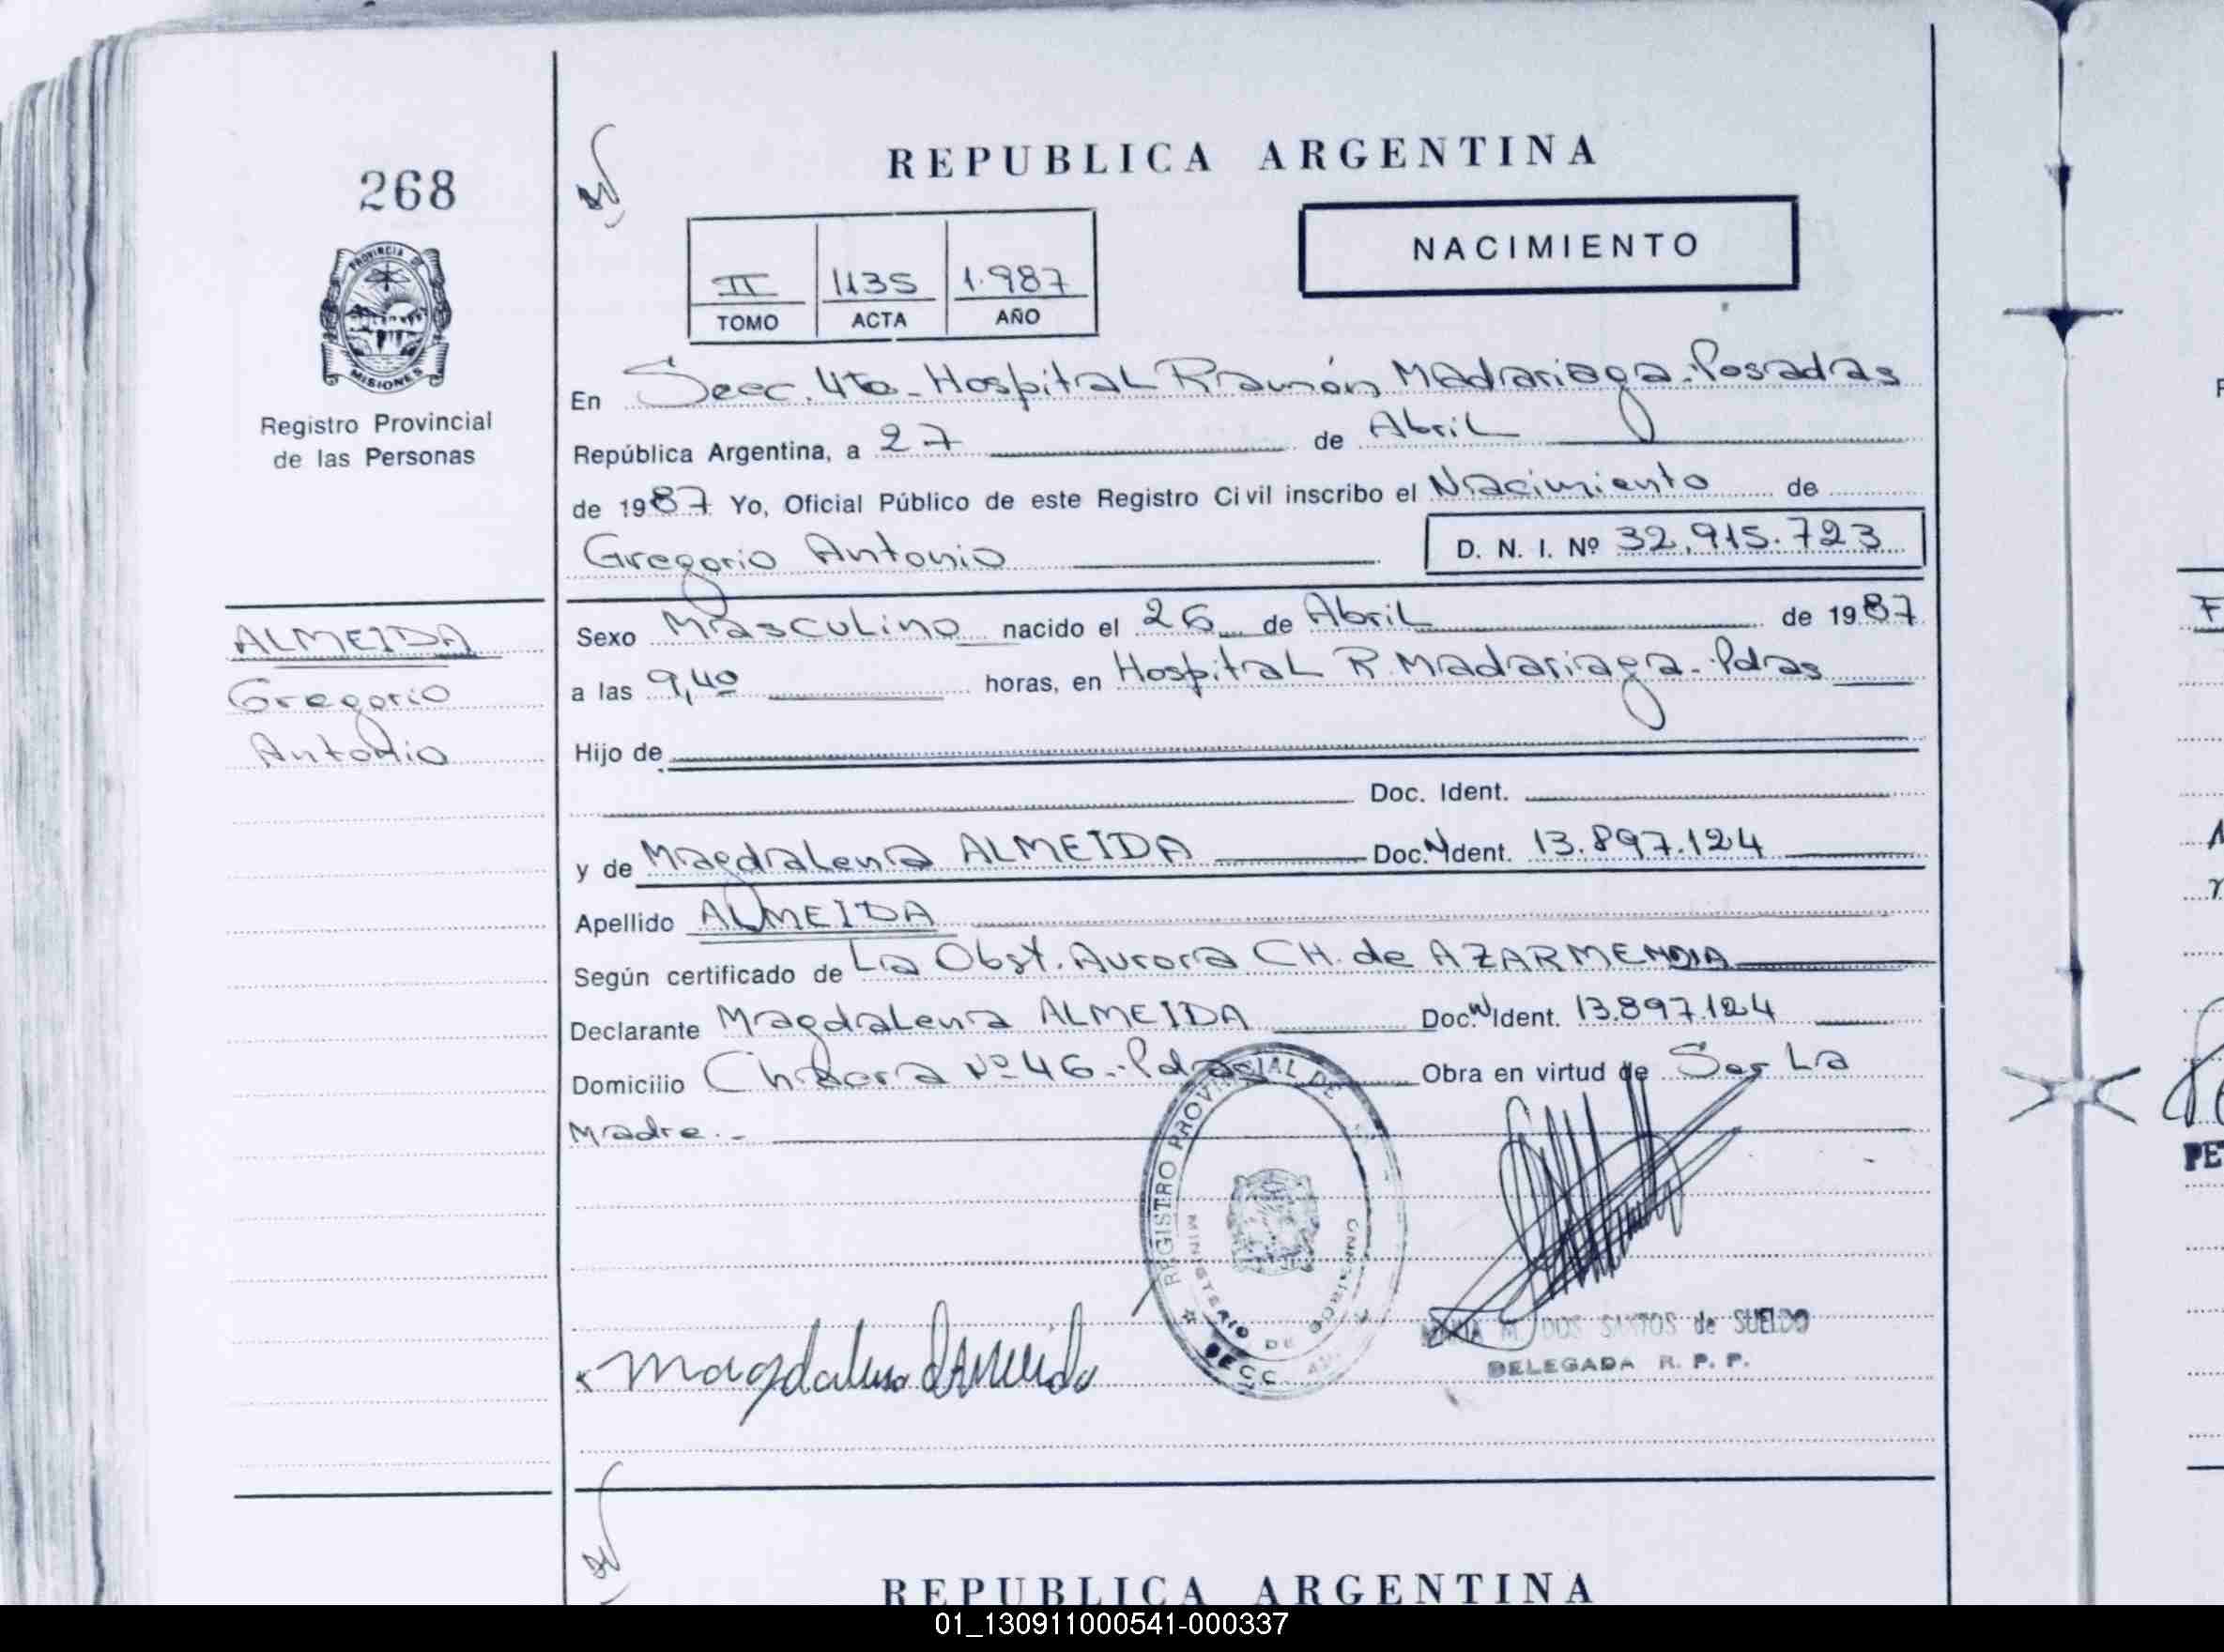 268
PROVINCIA DE
MISIONES
Registro Provincial
de las Personas
ALMEIDA
Gregorio
Antonio
REPUBLICA ARGENTINA
NACIMIENTO
II 1135 1.987
TOMO ACTA AÑO
En Secc. 4ta - Hospital Ramón Madariaga - Posadas
República Argentina, a 27 de Abril
de 1987 Yo, Oficial Público de este Registro Civil inscribo el Nacimiento de
Gregorio Antonio D. N. I. Nº 32.915.723
Sexo Masculino nacido el 26 de Abril de 1987
a las 9,40 horas, en Hospital R. Madariaga - Pdas
Hijo de
Doc. Ident.
y de Magdalena ALMEIDA Doc. Ident. 13.897.124
Apellido ALMEIDA
Según certificado de La Obst. Aurora CH. de AZARMENDIA
Declarante Magdalena ALMEIDA Doc. Ident. 13.897.124
Domicilio Chacra Nº 46 - Pdas Obra en virtud de Ser La
Madre.-
REGISTRO PROVINCIAL DE
MINISTERIO DE
SECC
Magdalena Almeida
M. DOS SANTOS de SUELDO
DELEGADA R. P. P.
REPUBLICA ARGENTINA
PE
01_130911000541-000337